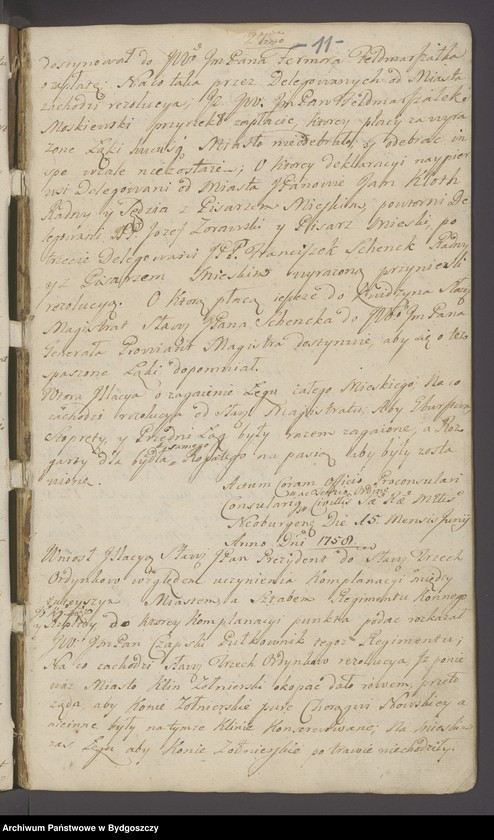 -11-
dostynował do JWo JmPana Fermora Feldmarszałka
o zapłatę; Na co taka przez Delegowanych od Miasta
zachodzi rezolucya; Jż JW. JmPan Feldmarszałek
Moskiewski przyrzekł zapłacie, ktorey płacy za wyra
zone Łąki swoie Miasto nieodebrało, y odebrac in
spe wcale niezostaie; O ktorey deklaracyi naypier
wsi delegowani od Miasta JPanowie Jan Kloth
Radny y Sędzia z Pisarzem Mieyskim, powtorni De
legowani PP. Jozef Zorawski y Pisarz Mieski, po
trzecie Delegowani JPP. Franciszek Schenck Radny
y z Pisarzem Mieskim wyrazoną przyniesli
rezolucyą. O ktorą płacą ieszcze do Kwidzyna Sławy
Magistrat Sławy JPana Schencka do JWo JmPana
Generała Prowiant Magistra dostynuie, aby się o też
spaszone Łąki dopomniał.
Wtora Jllacya o zagaienie Łęgu całego Mieskiego; Na co
zachodzi rezolucya od Sławo Magistratu; Aby
Stoprety, y Przedni Łąg były razem zagaione, a Roz
garty dla bydła samego Rogatego na paszą aby były zosta
wione.
Actum Coram Officio Proconsulari
Consulari Civittis Sae Rae Mttis
Neoburgens Die 15 Mensis Junij
Anno Dni 1758
Wniosł Jllacyą Sławy JPan Prezydent do Sławy Trzech
Ordynkow względem uczynienia Komplanacyi między
tuteyszym Miastem, a Sztabem Regimentu Konnego
do ktorey Komplanacyi punkta podac rozkazał
JWo JmPan Czapski Pułkownik tegoż Regimentu;
Na co zachodzi Sławy Trzech Ordynkow rezolucya, Jż ponie
waz Miasto Klin Zołnierski okopać dało rowem, przeto
ząda, aby Konie Zołnierskie pułc Chorągwi Nowskiey a
nieinne były na tymze Klinie Konserwowane; Na Mieskim
zas Łęgu aby Konie Zołnierskie po trawie niechodziły.
Archiwum Państwowe w Bydgoszczy